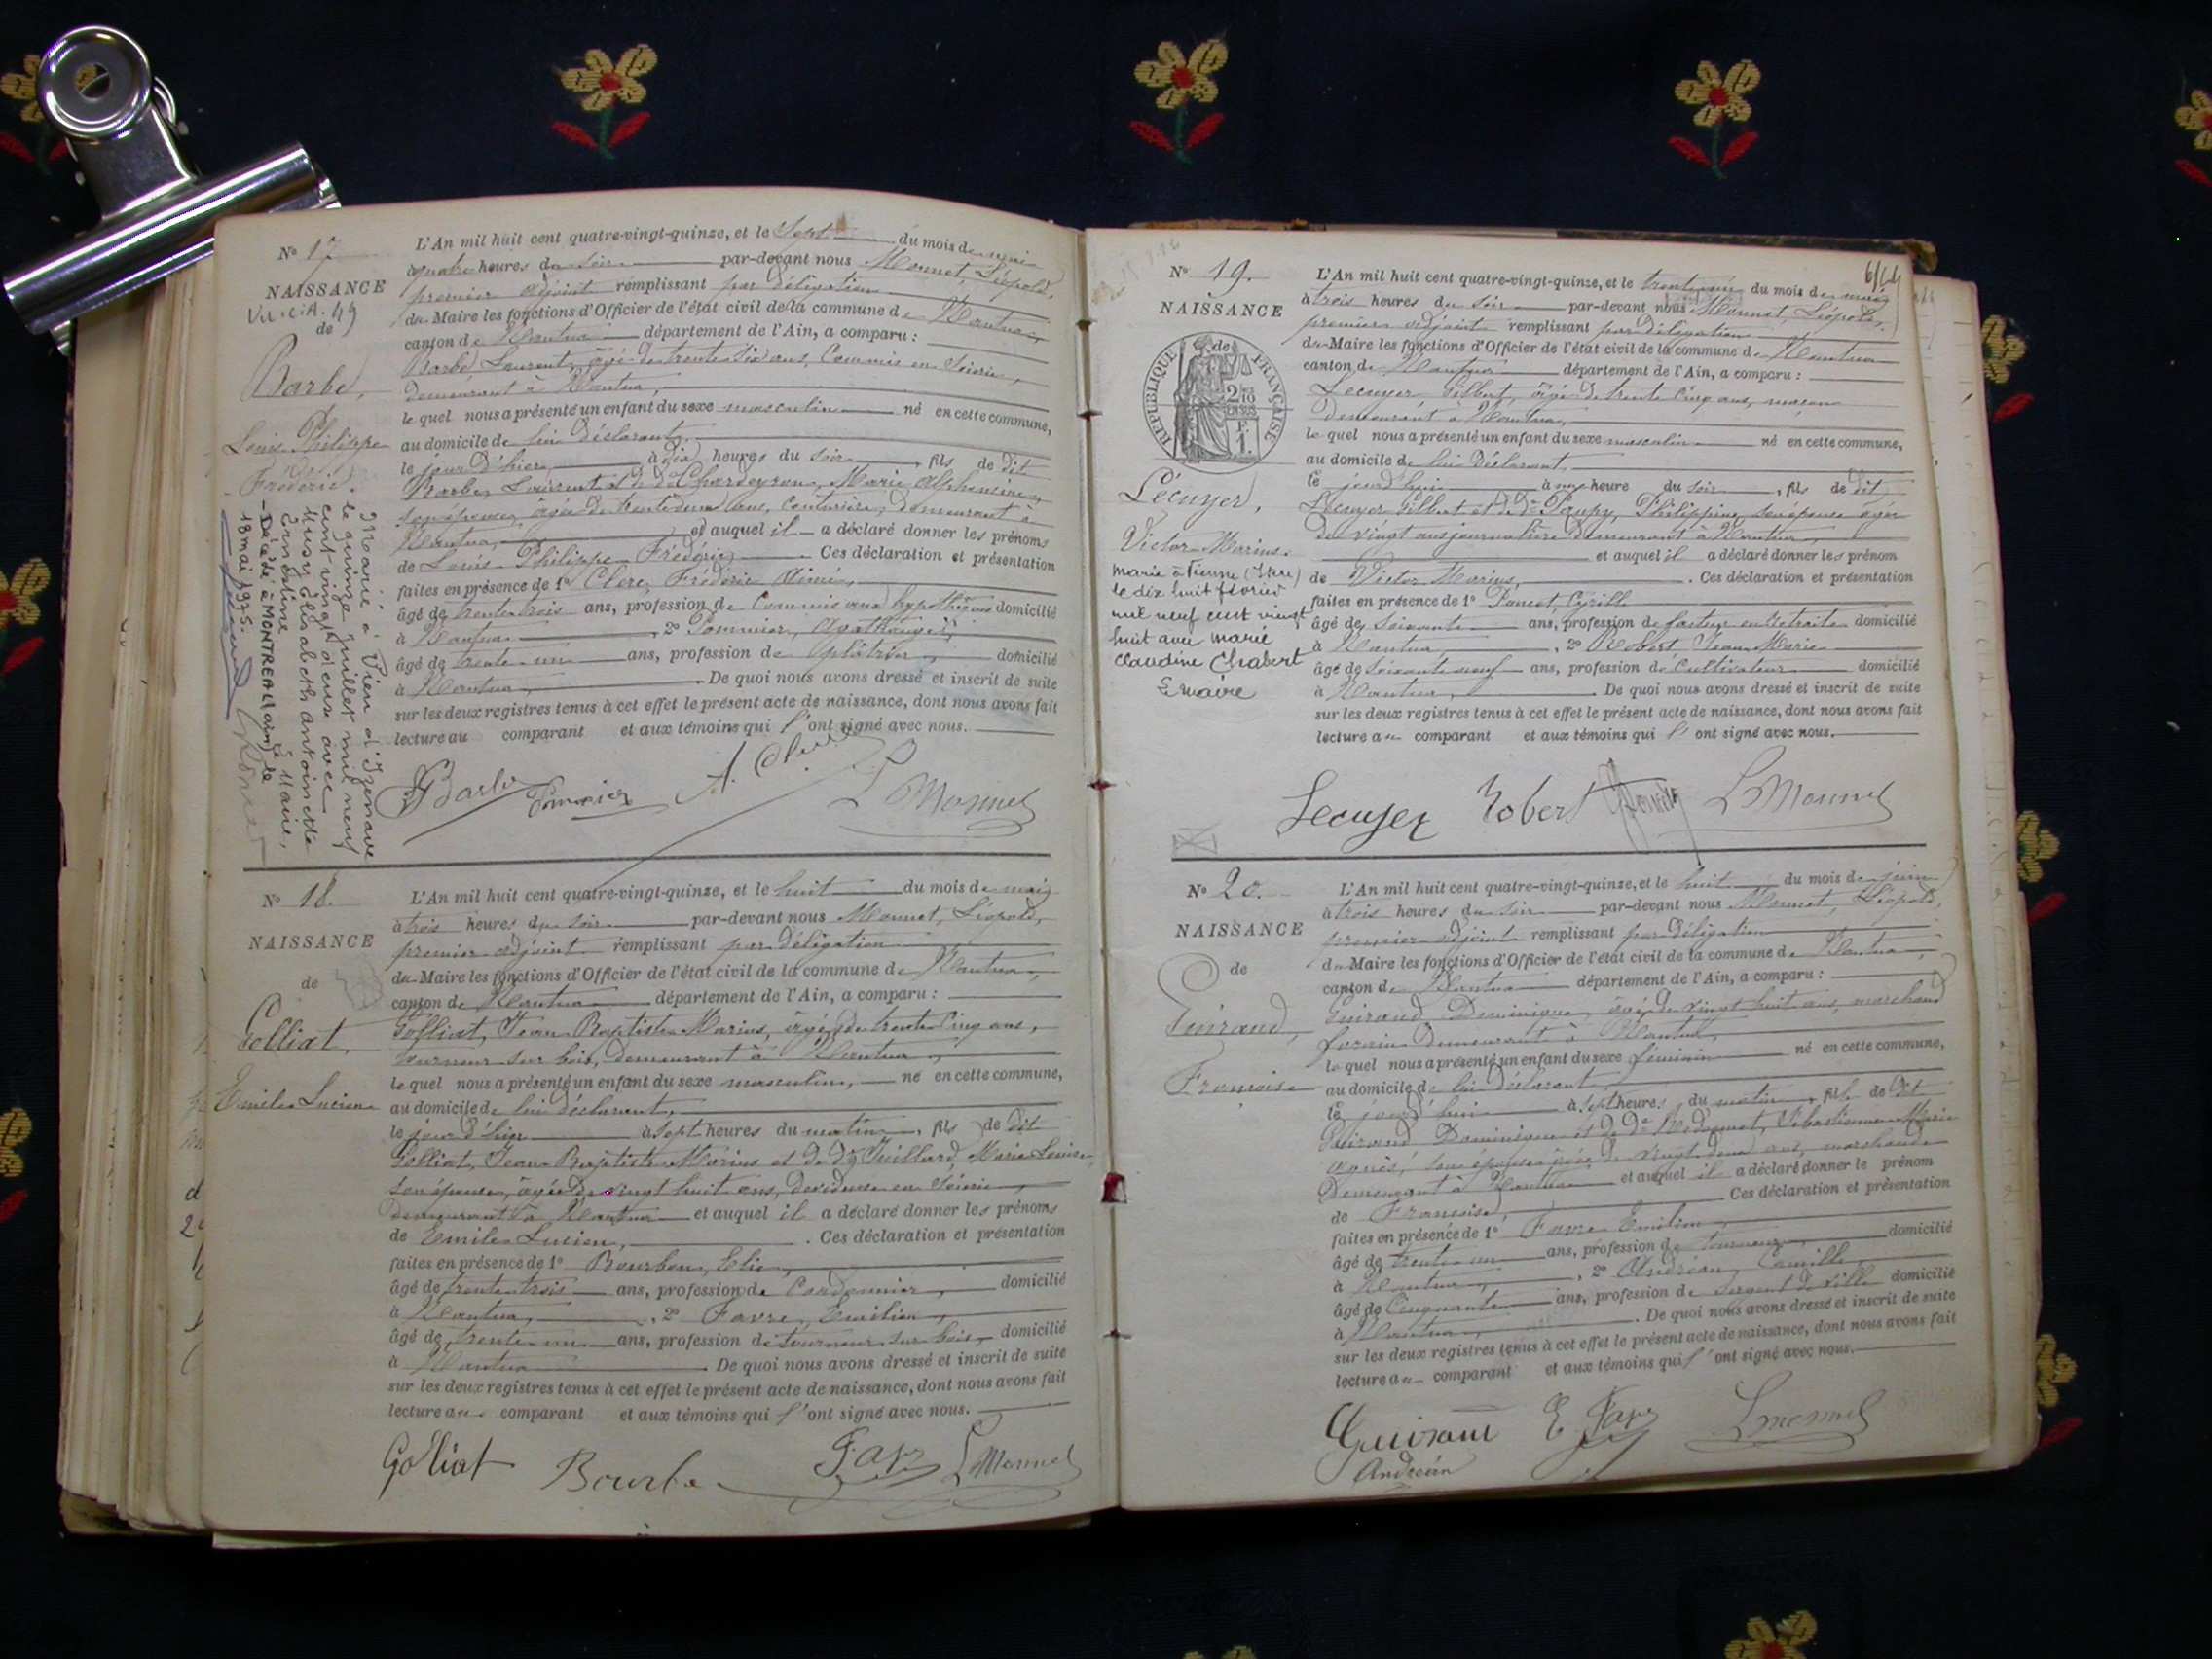 N° 17
NAISSANCE
de
Barbe,
Louis Philippe
Frédéric.
Marié à Vieu d'Izenave
le quinze juillet mil neuf
cent vingt deux avec
Elisabeth Antoinette
Ernestine
Le Maire,
Décédé à MONTREAL (ain) le
18 mai 1975.
L'An mil huit cent quatre-vingt-quinze, et le Sept du mois de mai
à quatre heures du soir par-devant nous Monnet, Léopold,
premier adjoint remplissant par délégation
du Maire les fonctions d'Officier de l'état civil de la commune de Nantua,
canton de Nantua département de l'Ain, a comparu :
Barbe Laurent, âgé de trente six ans, Commis en Soierie,
demeurant à Nantua,
lequel nous a présenté un enfant du sexe masculin né en cette commune,
au domicile de lui déclarant,
le jour d'hier, à dix heures du soir, fils de dit
Barbe, Laurent et de de Chardeyron, Marie Alphonsine,
son épouse, âgée de trente deux ans, Couturière, demeurant à
Nantua, et auquel il a déclaré donner les prénoms
de Louis Philippe Frédéric. Ces déclaration et présentation
faites en présence de 1° Clerc, Frédéric Aimé,
âgé de trente trois ans, profession de Commis aux hypothèques domicilié
à Nantua, 2° Pommier,
âgé de trente un ans, profession de plâtrier, domicilié
à Nantua, De quoi nous avons dressé et inscrit de suite
sur les deux registres tenus à cet effet le présent acte de naissance, dont nous avons fait
lecture au comparant et aux témoins qui l'ont signé avec nous.
Barbe Pommier A. Clerc L Monnet
N° 18.
NAISSANCE
de
Golliat,
Emile Lucien
L'An mil huit cent quatre-vingt-quinze, et le huit du mois de mai
à trois heures du soir par-devant nous Monnet, Léopold,
premier adjoint remplissant par délégation
du Maire les fonctions d'Officier de l'état civil de la commune de Nantua,
canton de Nantua département de l'Ain, a comparu :
Golliat, Jean Baptiste Marius, âgé de trente cinq ans,
tourneur sur bois, demeurant à Nantua,
lequel nous a présenté un enfant du sexe masculin, né en cette commune,
au domicile de lui déclarant,
le jour d'hier à sept heures du matin, fils de dit
Golliat, Jean Baptiste Marius et de de Juillard, Marie Louise,
son épouse, âgée de vingt huit ans, dévideuse en Soierie,
demeurant à Nantua et auquel il a déclaré donner les prénoms
de Emile Lucien, . Ces déclaration et présentation
faites en présence de 1° Bourbon, Elie,
âgé de trente trois ans, profession de Cordonnier, domicilié
à Nantua, , 2° Favre, Emilien,
âgé de trente un ans, profession de tourneur sur bois, domicilié
à Nantua De quoi nous avons dressé et inscrit de suite
sur les deux registres tenus à cet effet le présent acte de naissance, dont nous avons fait
lecture au comparant et aux témoins qui l'ont signé avec nous.
Golliat Bourbon Favre L Monnet
N° 19.
NAISSANCE
de
REPUBLIQUE FRANÇAISE
Lécuyer,
Victor Marius.
marié à Vienne (Isère)
le dix huit février
mil neuf cent vingt
huit avec Marie
Claudine Chabert
L'An mil huit cent quatre-vingt-quinze, et le trente un du mois de mai
à trois heures du soir par-devant nous Monnet, Léopold,
premier adjoint remplissant par délégation
du Maire les fonctions d'Officier de l'état civil de la commune de Nantua
canton de Nantua département de l'Ain, a comparu :
Lecuyer, Gilbert, âgé de trente cinq ans, maçon
demeurant à Nantua,
lequel nous a présenté un enfant du sexe masculin né en cette commune,
au domicile de lui déclarant,
le jour d'hui à une heure du soir, fils de dit
Lecuyer Gilbert et de de Philippine, son épouse âgée
de vingt ans journalière demeurant à Nantua,
et auquel il a déclaré donner les prénom
de Victor Marius, . Ces déclaration et présentation
faites en présence de 1° Cyrille
âgé de soixante ans, profession de facteur en retraite domicilié
à Nantua, , 2° Robert, Jean Marie
âgé de soixante neuf ans, profession de Cultivateur domicilié
à Nantua, . De quoi nous avons dressé et inscrit de suite
sur les deux registres tenus à cet effet le présent acte de naissance, dont nous avons fait
lecture au comparant et aux témoins qui l'ont signé avec nous.
Lecuyer Robert L Monnet
N° 20.
NAISSANCE
de
Guirand,
Françoise
L'An mil huit cent quatre-vingt-quinze, et le huit du mois de juin
à trois heures du soir par-devant nous Monnet, Léopold,
premier adjoint remplissant par délégation
du Maire les fonctions d'Officier de l'état civil de la commune de Nantua,
canton de Nantua département de l'Ain, a comparu :
Guirand, Dominique, âgé de vingt huit ans, marchand
forain demeurant à Nantua,
lequel nous a présenté un enfant du sexe féminin né en cette commune,
au domicile de lui déclarant
le jour d'hui à sept heures du matin, fille de dit
Guirand Dominique et de de Sébastienne Marie
Agnès, son épouse âgée de vingt deux ans, marchande
Demeurant à Nantua et auquel il a déclaré donner le prénom
de Françoise, Ces déclaration et présentation
faites en présence de 1° Favre Emilien,
âgé de trente un ans, profession de tourneur, domicilié
à Nantua, , 2° Andréan, Camille,
âgé de Cinquante ans, profession de sergent de ville domicilié
à Nantua, . De quoi nous avons dressé et inscrit de suite
sur les deux registres tenus à cet effet le présent acte de naissance, dont nous avons fait
lecture au comparant et aux témoins qui l'ont signé avec nous.
Guirand E Favre L Monnet
Andréan